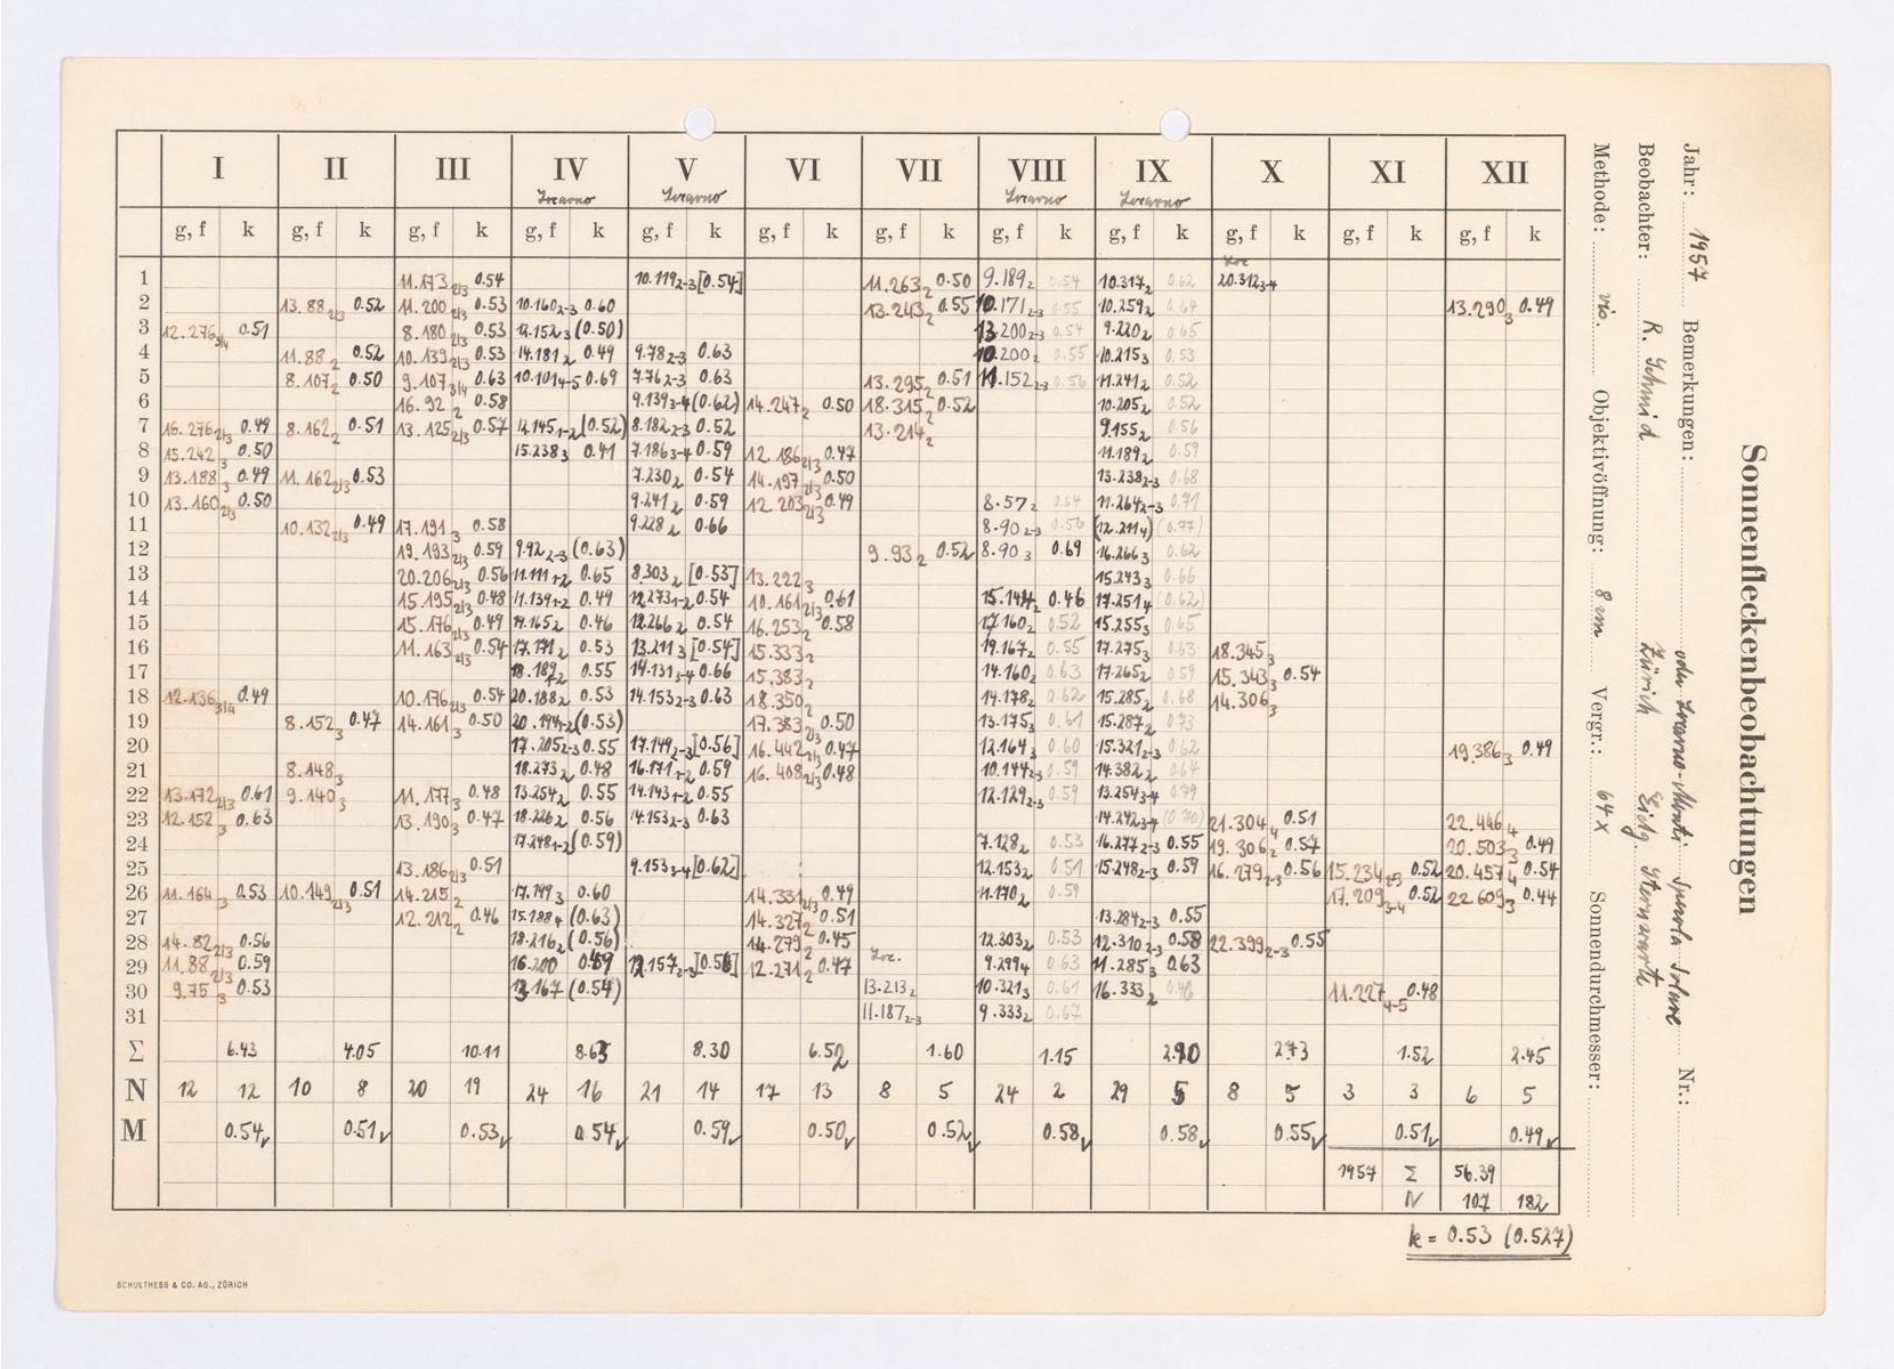 Sonnenfleckenbeobachtungen
Jahr: 1957 Bemerkungen: oder Locarno-Monti Specola Solare Nr.:
Beobachter: R. Schmid Zürich Eidg. Sternwarte
Methode: vis. Objektivöffnung: 8 cm Vergr.: 64 x Sonnendurchmesser:
I II III IV V VI VII VIII IX X XI XII
Locarno Locarno Locarno Locarno
g, f k g, f k g, f k g, f k g, f k g, f k g, f k g, f k g, f k g, f k g, f k g, f k
Loc
1 11.173 2/3 0.54 10.119 2-3 [0.54] 11.263 2 0.50 9.189 2 0.54 10.317 2 0.62 20.312 3-4
2 13.88 2/3 0.52 11.200 2/3 0.53 10.160 2-3 0.60 13.243 2 0.55 10.171 2-3 0.55 10.259 2 0.64 13.290 3 0.49
3 12.276 3/4 0.51 8.180 2/3 0.53 12.152 3 (0.50) 13.200 2-3 0.54 9.220 2 0.65
4 11.88 2 0.52 10.139 2/3 0.53 14.181 2 0.49 9.78 2-3 0.63 10.200 2 0.55 10.215 3 0.53
5 8.107 2 0.50 9.107 3/4 0.63 10.101 4-5 0.69 7.76 2-3 0.63 13.295 2 0.51 11.152 2-3 0.56 11.241 2 0.52
6 16.92 2 0.58 9.139 3-4 (0.62) 14.247 2 0.50 18.315 2 0.52 10.205 2 0.52
7 16.276 2/3 0.49 8.162 2 0.51 13.125 2/3 0.57 12.145 1-2 [0.52] 8.182 2-3 0.52 13.214 2 9.155 2 0.56
8 15.242 3 0.50 15.238 3 0.41 7.186 3-4 0.59 12.186 2/3 0.47 11.189 2 0.59
9 13.188 3 0.49 11.162 2/3 0.53 7.230 2 0.54 14.197 2/3 0.50 13.238 2-3 0.68
10 13.160 2/3 0.50 9.241 2 0.59 12.203 2/3 0.49 8.57 2 0.64 11.264 2-3 0.71
11 10.132 2/3 0.49 17.191 3 0.58 9.228 2 0.66 8.90 2-3 0.56 (12.211 4) (0.77)
12 19.193 2/3 0.59 9.92 2-3 (0.63) 9.93 2 0.52 8.90 3 0.69 16.266 3 0.62
13 20.206 2/3 0.56 11.111 1-2 0.65 8.303 2 [0.53] 13.222 3 15.243 3 0.66
14 15.195 2/3 0.48 11.139 1-2 0.49 12.273 1-2 0.54 10.161 2/3 0.61 15.144 2 0.46 17.251 4 (0.62)
15 15.176 2/3 0.49 14.165 2 0.46 12.266 2 0.54 16.253 2 0.58 17.160 2 0.52 15.255 3 0.65
16 11.163 2/3 0.54 17.171 2 0.53 13.211 3 [0.54] 15.333 2 19.167 2 0.55 17.275 3 0.63 18.345 3
17 18.189 2 0.55 14.131 3-4 0.66 15.383 2 14.160 2 0.63 17.265 2 0.59 15.343 3 0.54
18 12.136 3/4 0.49 10.176 2/3 0.54 20.188 2 0.53 14.153 2-3 0.63 18.350 2 14.178 2 0.62 15.285 2 0.68 14.306 3
19 8.152 3 0.47 14.161 3 0.50 20.194 1-2 (0.53) 17.383 2/3 0.50 13.175 3 0.61 15.287 2 0.73
20 17.205 2-3 0.55 17.149 2-3 [0.56] 16.442 2/3 0.47 12.164 3 0.60 15.321 2-3 0.62 19.386 3 0.49
21 8.148 3 18.273 2 0.48 16.171 1-2 0.59 16.408 2/3 0.48 10.144 2-3 0.59 14.382 2 0.64
22 13.172 2/3 0.61 9.140 3 11.177 3 0.48 13.254 2 0.55 14.143 1-2 0.55 12.129 2-3 0.59 13.254 3-4 0.79
23 12.152 3 0.63 13.190 3 0.47 18.226 2 0.56 14.153 2-3 0.63 14.242 3-4 (0.70) 21.304 4 0.51 22.446 4
24 17.248 1-2 (0.59) 7.128 2 0.53 16.277 2-3 0.55 19.306 2 0.57 20.503 3 0.49
25 13.186 2/3 0.51 9.153 3-4 [0.62] 12.153 2 0.51 15.248 2-3 0.59 16.279 2-3 0.56 15.234 2-3 0.52 20.457 4 0.54
26 11.164 3 0.53 10.149 2/3 0.51 14.215 2 17.199 3 0.60 14.331 2/3 0.49 11.170 2 0.59 17.209 3-4 0.52 22.609 3 0.44
27 12.212 2 0.46 15.188 4 (0.63) 14.327 2 0.51 13.284 2-3 0.55
28 14.82 2/3 0.56 18.216 2 (0.56) 14.279 2 0.45 12.303 2 0.53 12.310 2-3 0.58 22.399 2-3 0.55
29 11.88 2/3 0.59 16.200 0.49 12.157 2-3 [0.56] 12.271 2 0.47 Loc. 9.299 4 0.63 11.285 3 0.63
30 9.75 3 0.53 13.167 (0.54) 13.213 2 10.321 3 0.61 16.333 2 0.46 11.227 4-5 0.48
31 11.187 2-3 9.333 2 0.67
Σ 6.43 4.05 10.11 8.63 8.30 6.52 1.60 1.15 2.90 2.73 1.52 2.45
N 12 12 10 8 20 19 24 16 21 14 17 13 8 5 24 2 29 5 8 5 3 3 6 5
M 0.54 0.51 0.53 0.54 0.59 0.50 0.52 0.58 0.58 0.55 0.51 0.49
1957 Σ 56.39
N 107 182
k = 0.53 (0.527)
SCHULTHESS & CO. AG., ZÜRICH